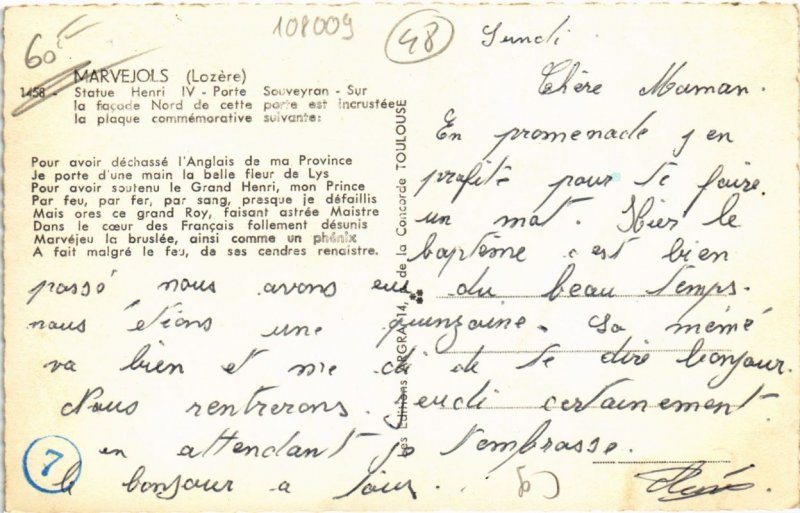 60F
108009
48
MARVEJOLS (Lozère)
1458 - Statue Henri IV - Porte Souveyran - Sur
la façade Nord de cette porte est incrustée
la plaque commémorative suivante:
Pour avoir déchassé l'Anglais de ma Province
Je porte d'une main la belle fleur de Lys
Pour avoir soutenu le Grand Henri, mon Prince
Par feu, par fer, par sang, presque je défaillis
Mais ores ce grand Roy, faisant astrée Maistre
Dans le cœur des Français follement désunis
Marvéjeu la bruslée, ainsi comme un phénix
A fait malgré le feu, de ses cendres renaistre.
Les Editions "ARGRA" 14, de la Concorde TOULOUSE
Lundi
Chère Maman.
En promenade j'en
profite pour te faire
un mot. Hier le
baptème c'est bien
passé nous avons eus du beau temps.
nous étions une quinzaine. La mémé
va bien et me di de te dire bonjour.
Nous rentrerons Jeudi certainement
en attendant je t'embrasse.
le bonjour a tous.
7